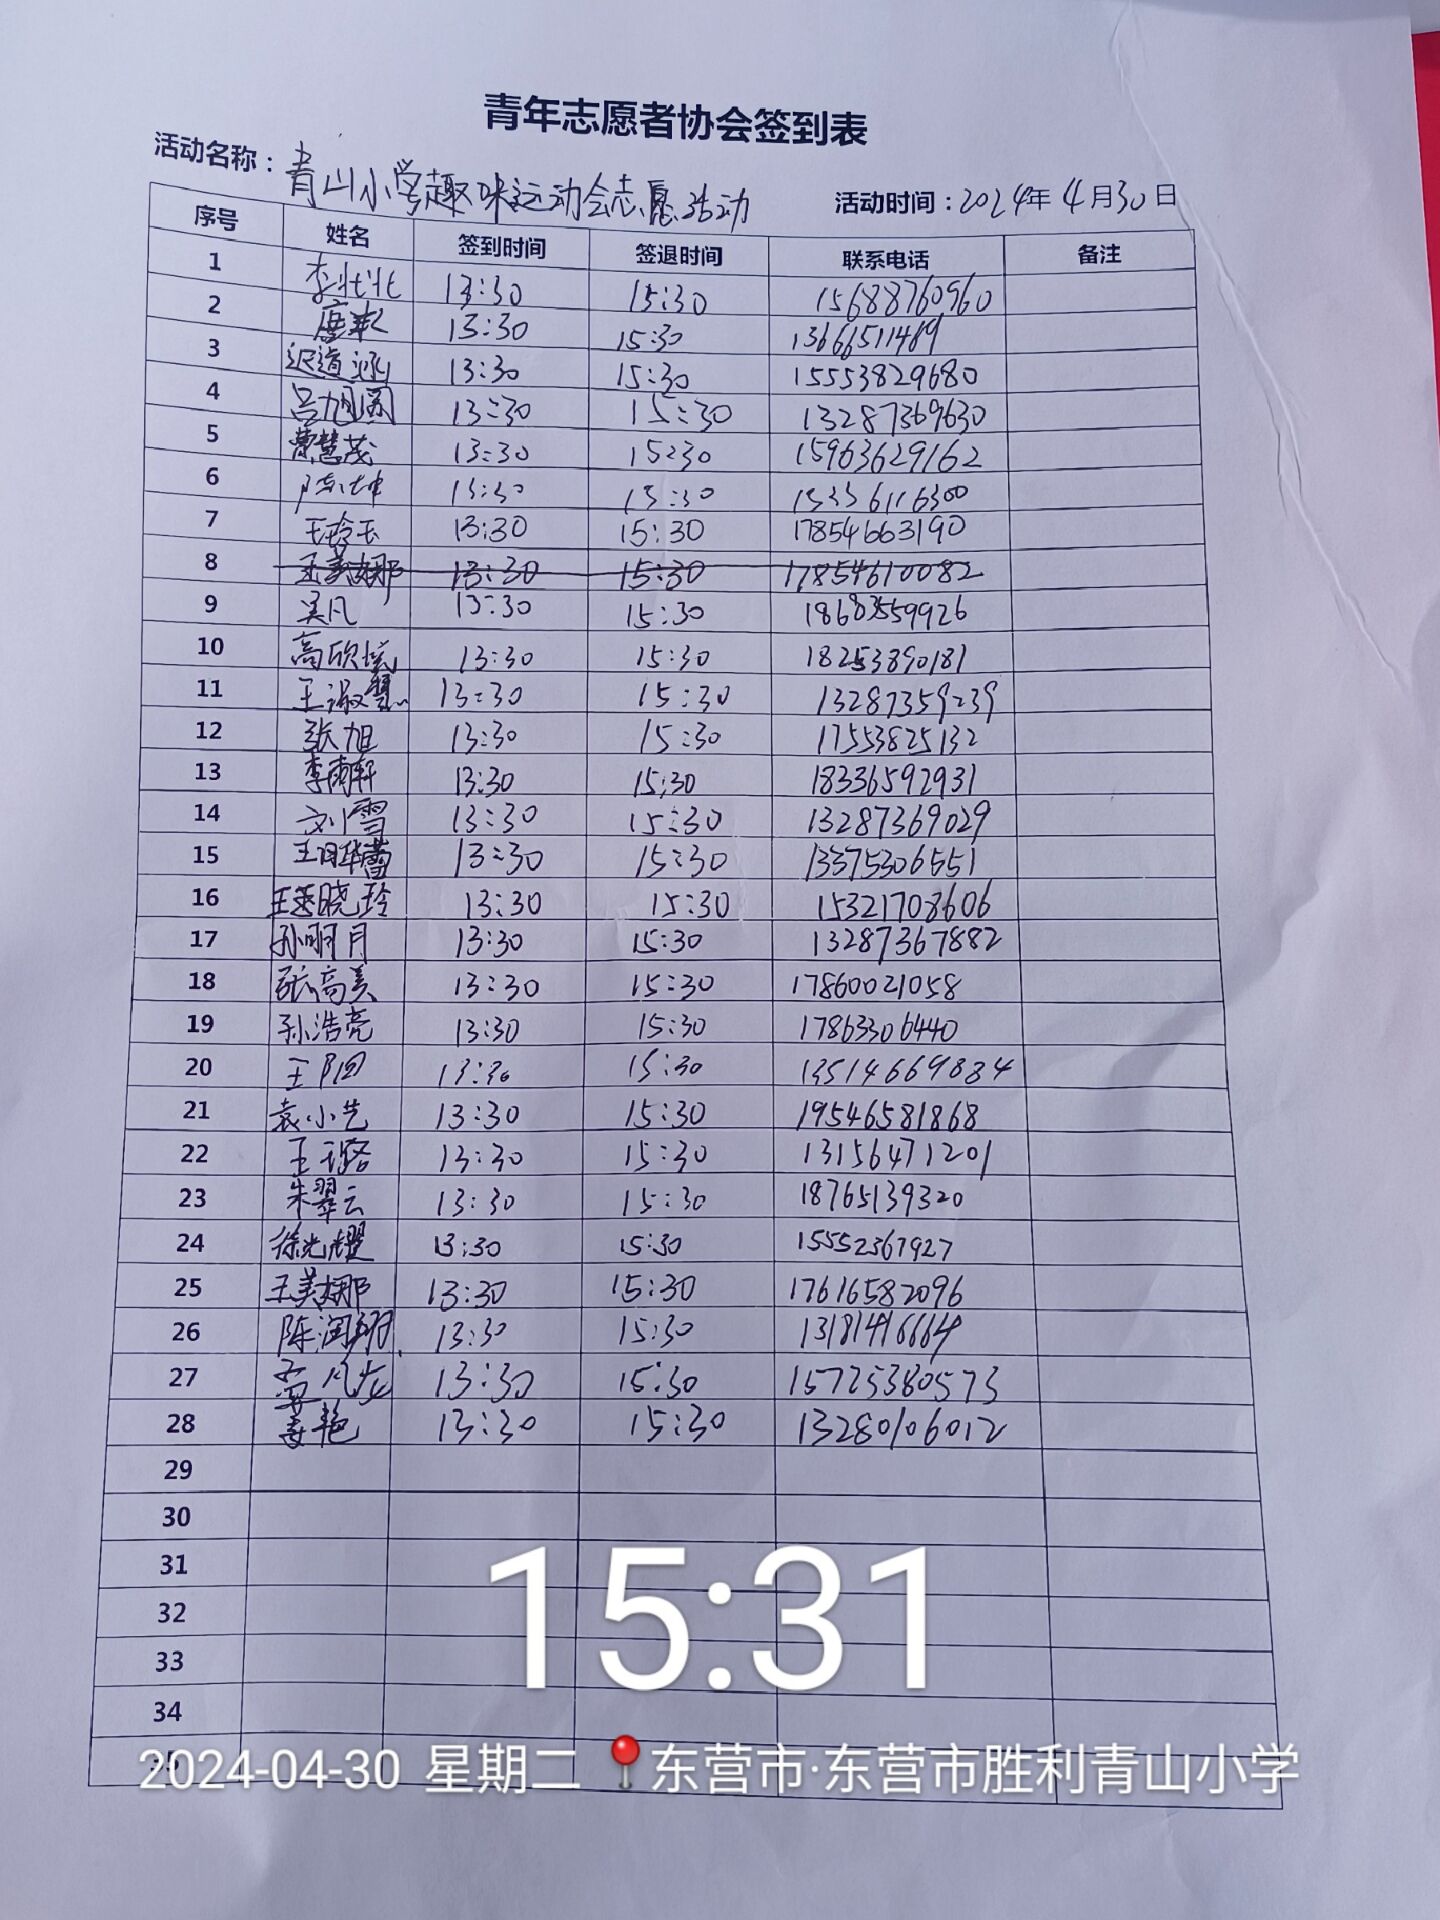 青年志愿者协会签到表
活动名称：青山小学趣味运动会志愿活动 活动时间：2024年4月30日
序号 姓名 签到时间 签退时间 联系电话 备注
1 李壮壮 13:30 15:30 15688760960
2 13:30 15:30 13666511489
3 迟道涵 13:30 15:30 15553829680
4 13:30 15:30 13287369630
5 曹慧茂 13:30 15:30 15963629162
6 陈坤 13:30 15:30 15336116300
7 王玲玉 13:30 15:30 17854663190
8 王美娜 13:30 15:30 17854610082
9 吴凡 13:30 15:30
10 13:30 15:30 18253890181
11 王淑慧 13:30 15:30 13287359239
12 张旭 13:30 15:30 17553825132
13 李雨轩 13:30 15:30 18336592931
14 刘雪 13:30 15:30 13287369029
15 13:30 15:30 13375306551
16 13:30 15:30 15321708606
17 孙明月 13:30 15:30 13287367882
18 张高美 13:30 15:30 17860021058
19 孙浩亮 13:30 15:30 17863306440
20 13:30 15:30 13514669834
21 袁小艺 13:30 15:30 19546581868
22 王璐 13:30 15:30 13156471201
23 朱翠云 13:30 15:30 18765139320
24 徐光耀 13:30 15:30 15552367927
25 王美娜 13:30 15:30 17616582096
26 陈润翔 13:30 15:30 13181416664
27 孟凡龙 13:30 15:30 15725380573
28 姜艳 13:30 15:30 13280106012
29
30
31
32
33
34
15:31
2024-04-30 星期二 东营市·东营市胜利青山小学